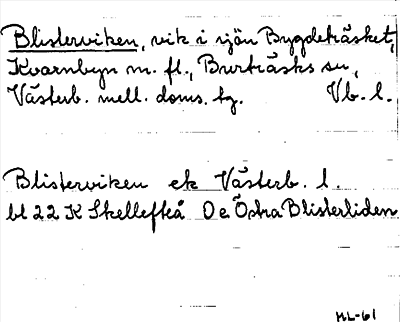 Blisterviken, vik i sjön Bygdeträsket,
Kvarnbyn m. fl., Burträsks sn,
Västerb. mell. doms. tg. Vb. l.
Blisterviken ek Västerb. l.
bl 22 K Skellefteå 0 e Östra Blisterliden
HL-61